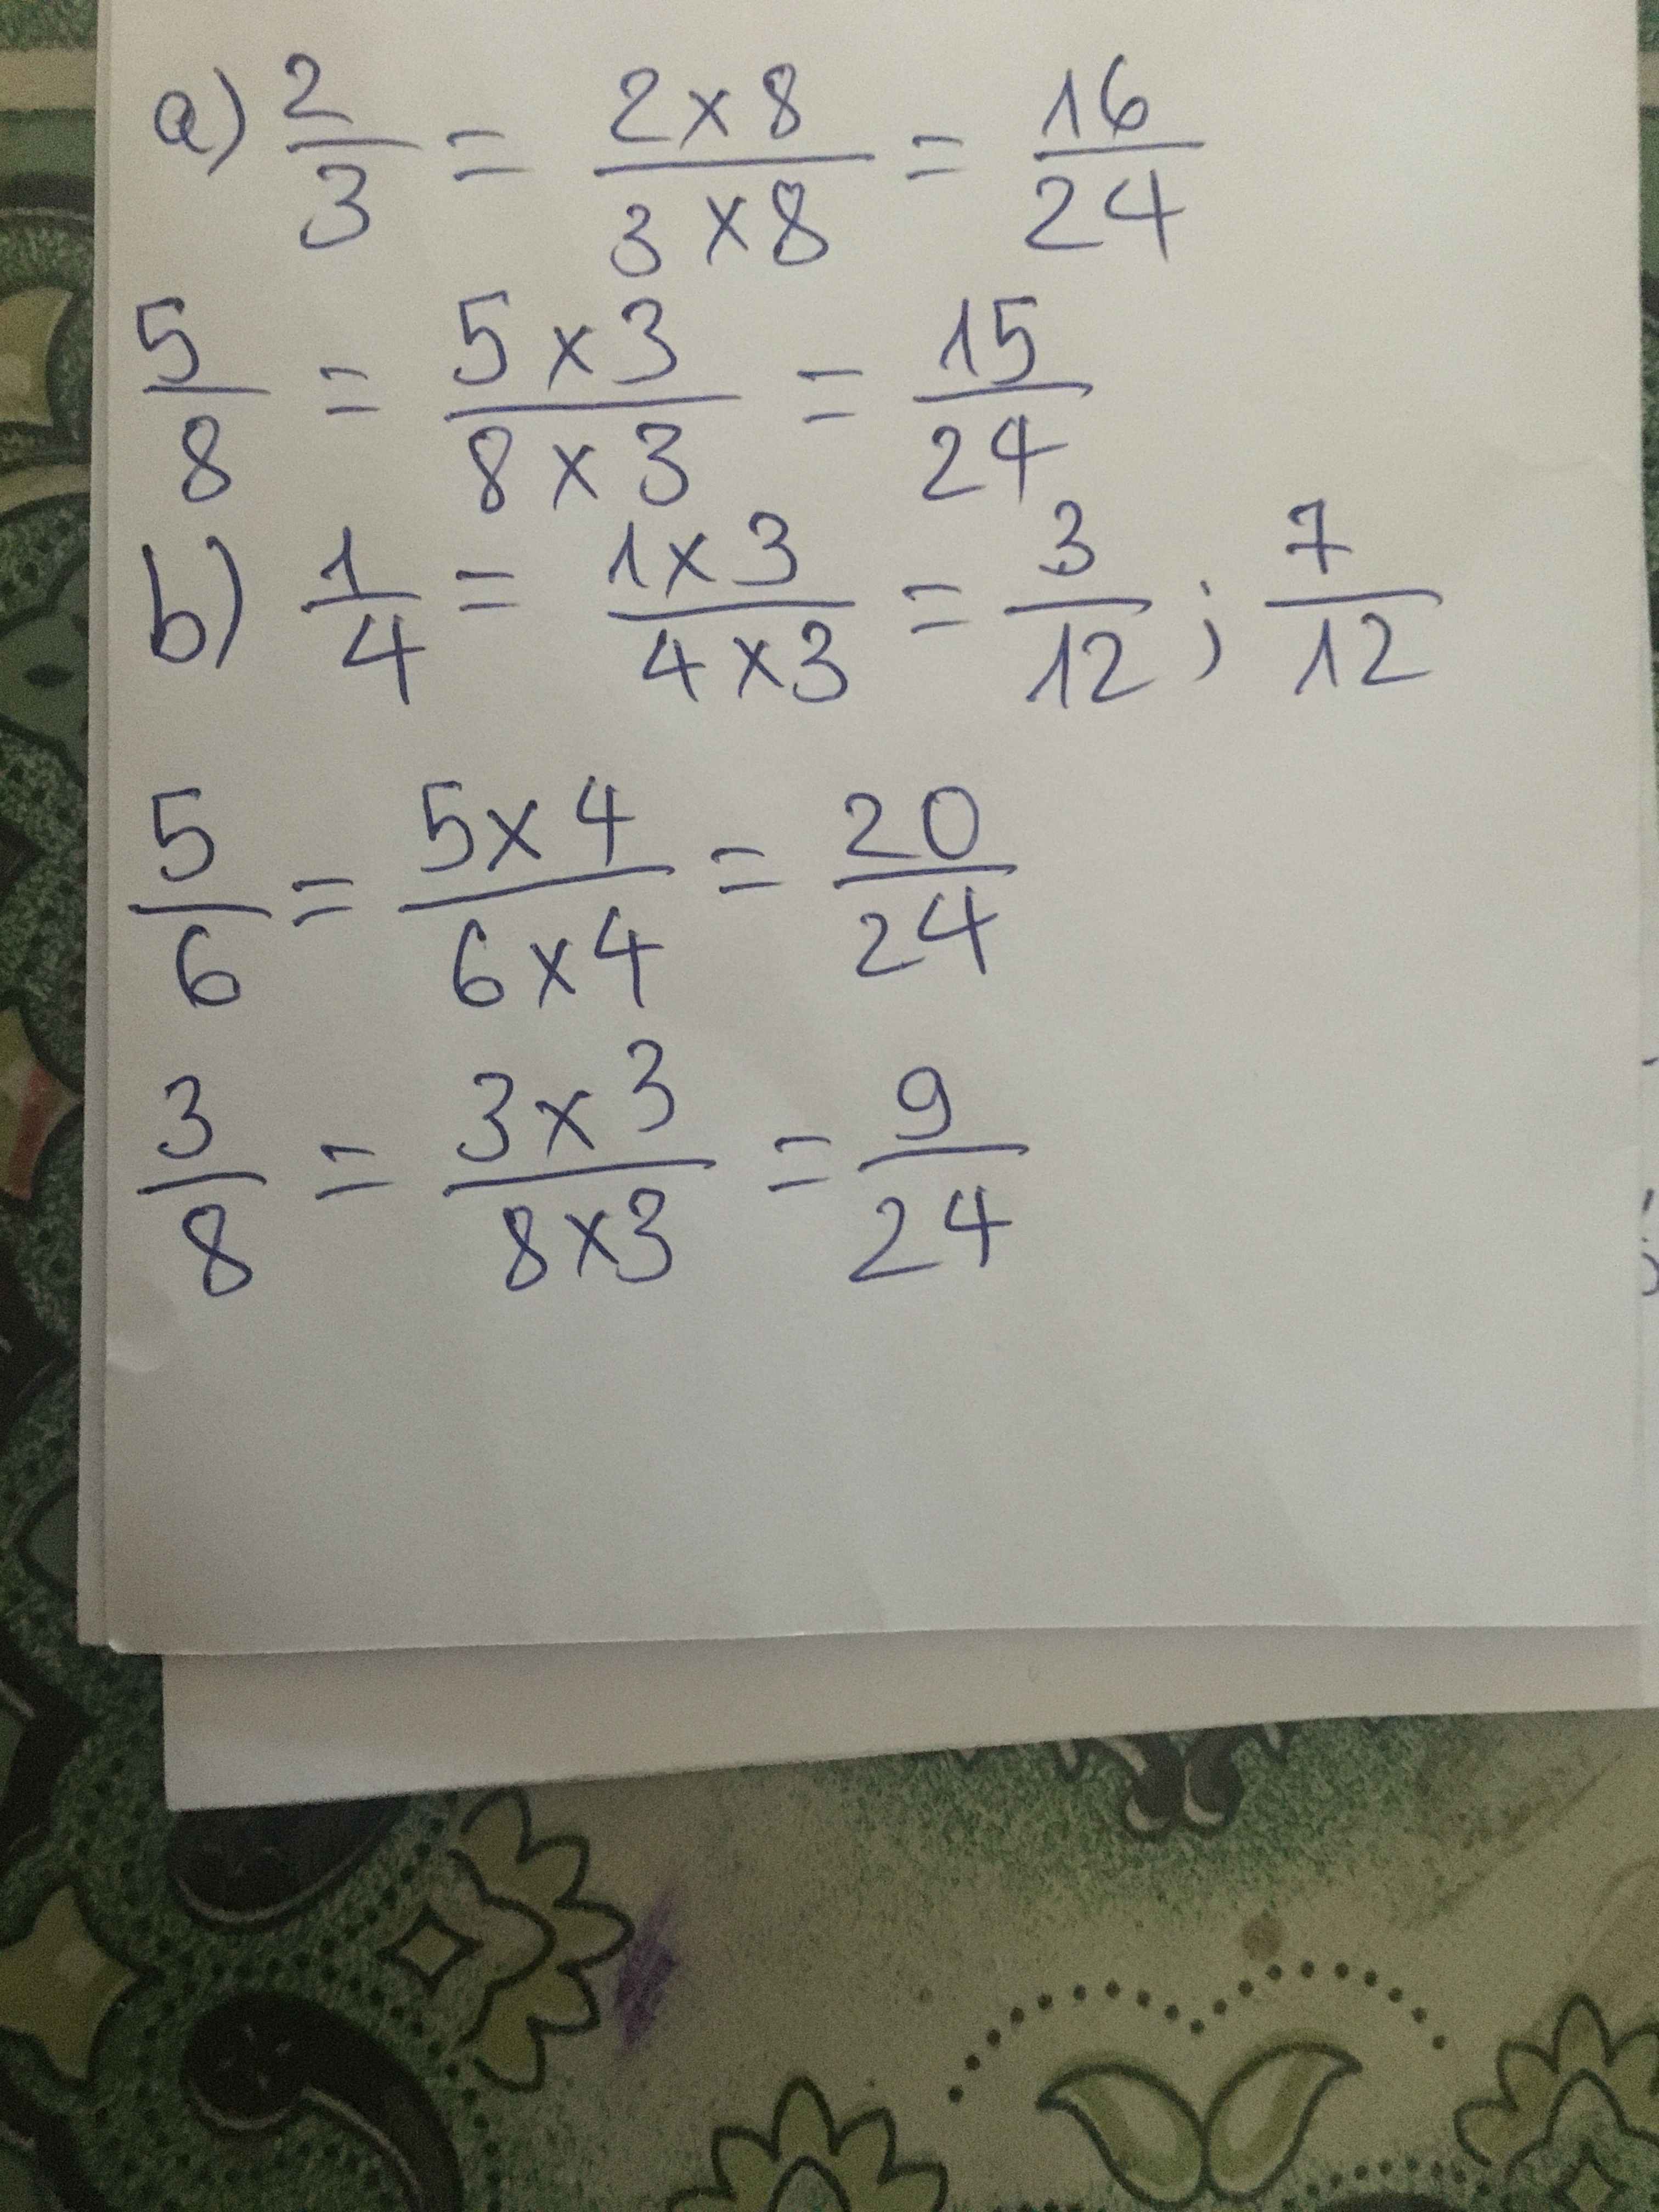 a) 2/3 = 2x8/3x8 = 16/24
5/8 = 5x3/8x3 = 15/24
b) 1/4 = 1x3/4x3 = 3/12 ; 7/12
5/6 = 5x4/6x4 = 20/24
3/8 = 3x3/8x3 = 9/24